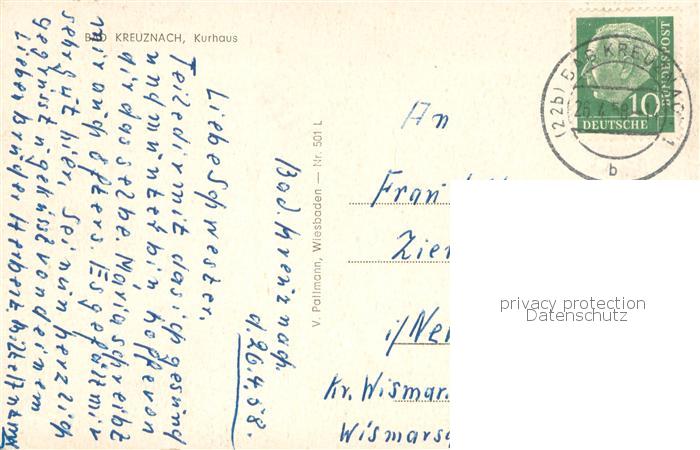 BAD KREUZNACH, Kurhaus
Bad. Kreiznach.
d. 26.4.58.
Liebe Schwester.
Teile dir mit das ich gesund
und munter bin, hoffe von
dir dasselbe. Maria schreibt
mir auch öfters. Es gefällt mir
sehr gut hier, sei nun herzlich
gegrüst u geküsst von deinem
Lieben bruder Herbert.
V. Pallmann, Wiesbaden — Nr. 501 L
DEUTSCHE
BUNDESPOST
10
(22b) BAD KREUZNACH 1
26.4.58
b
An
Frau
Zier
i/ Neu
Kr. Wismar.
Wismarsc
privacy protection
Datenschutz